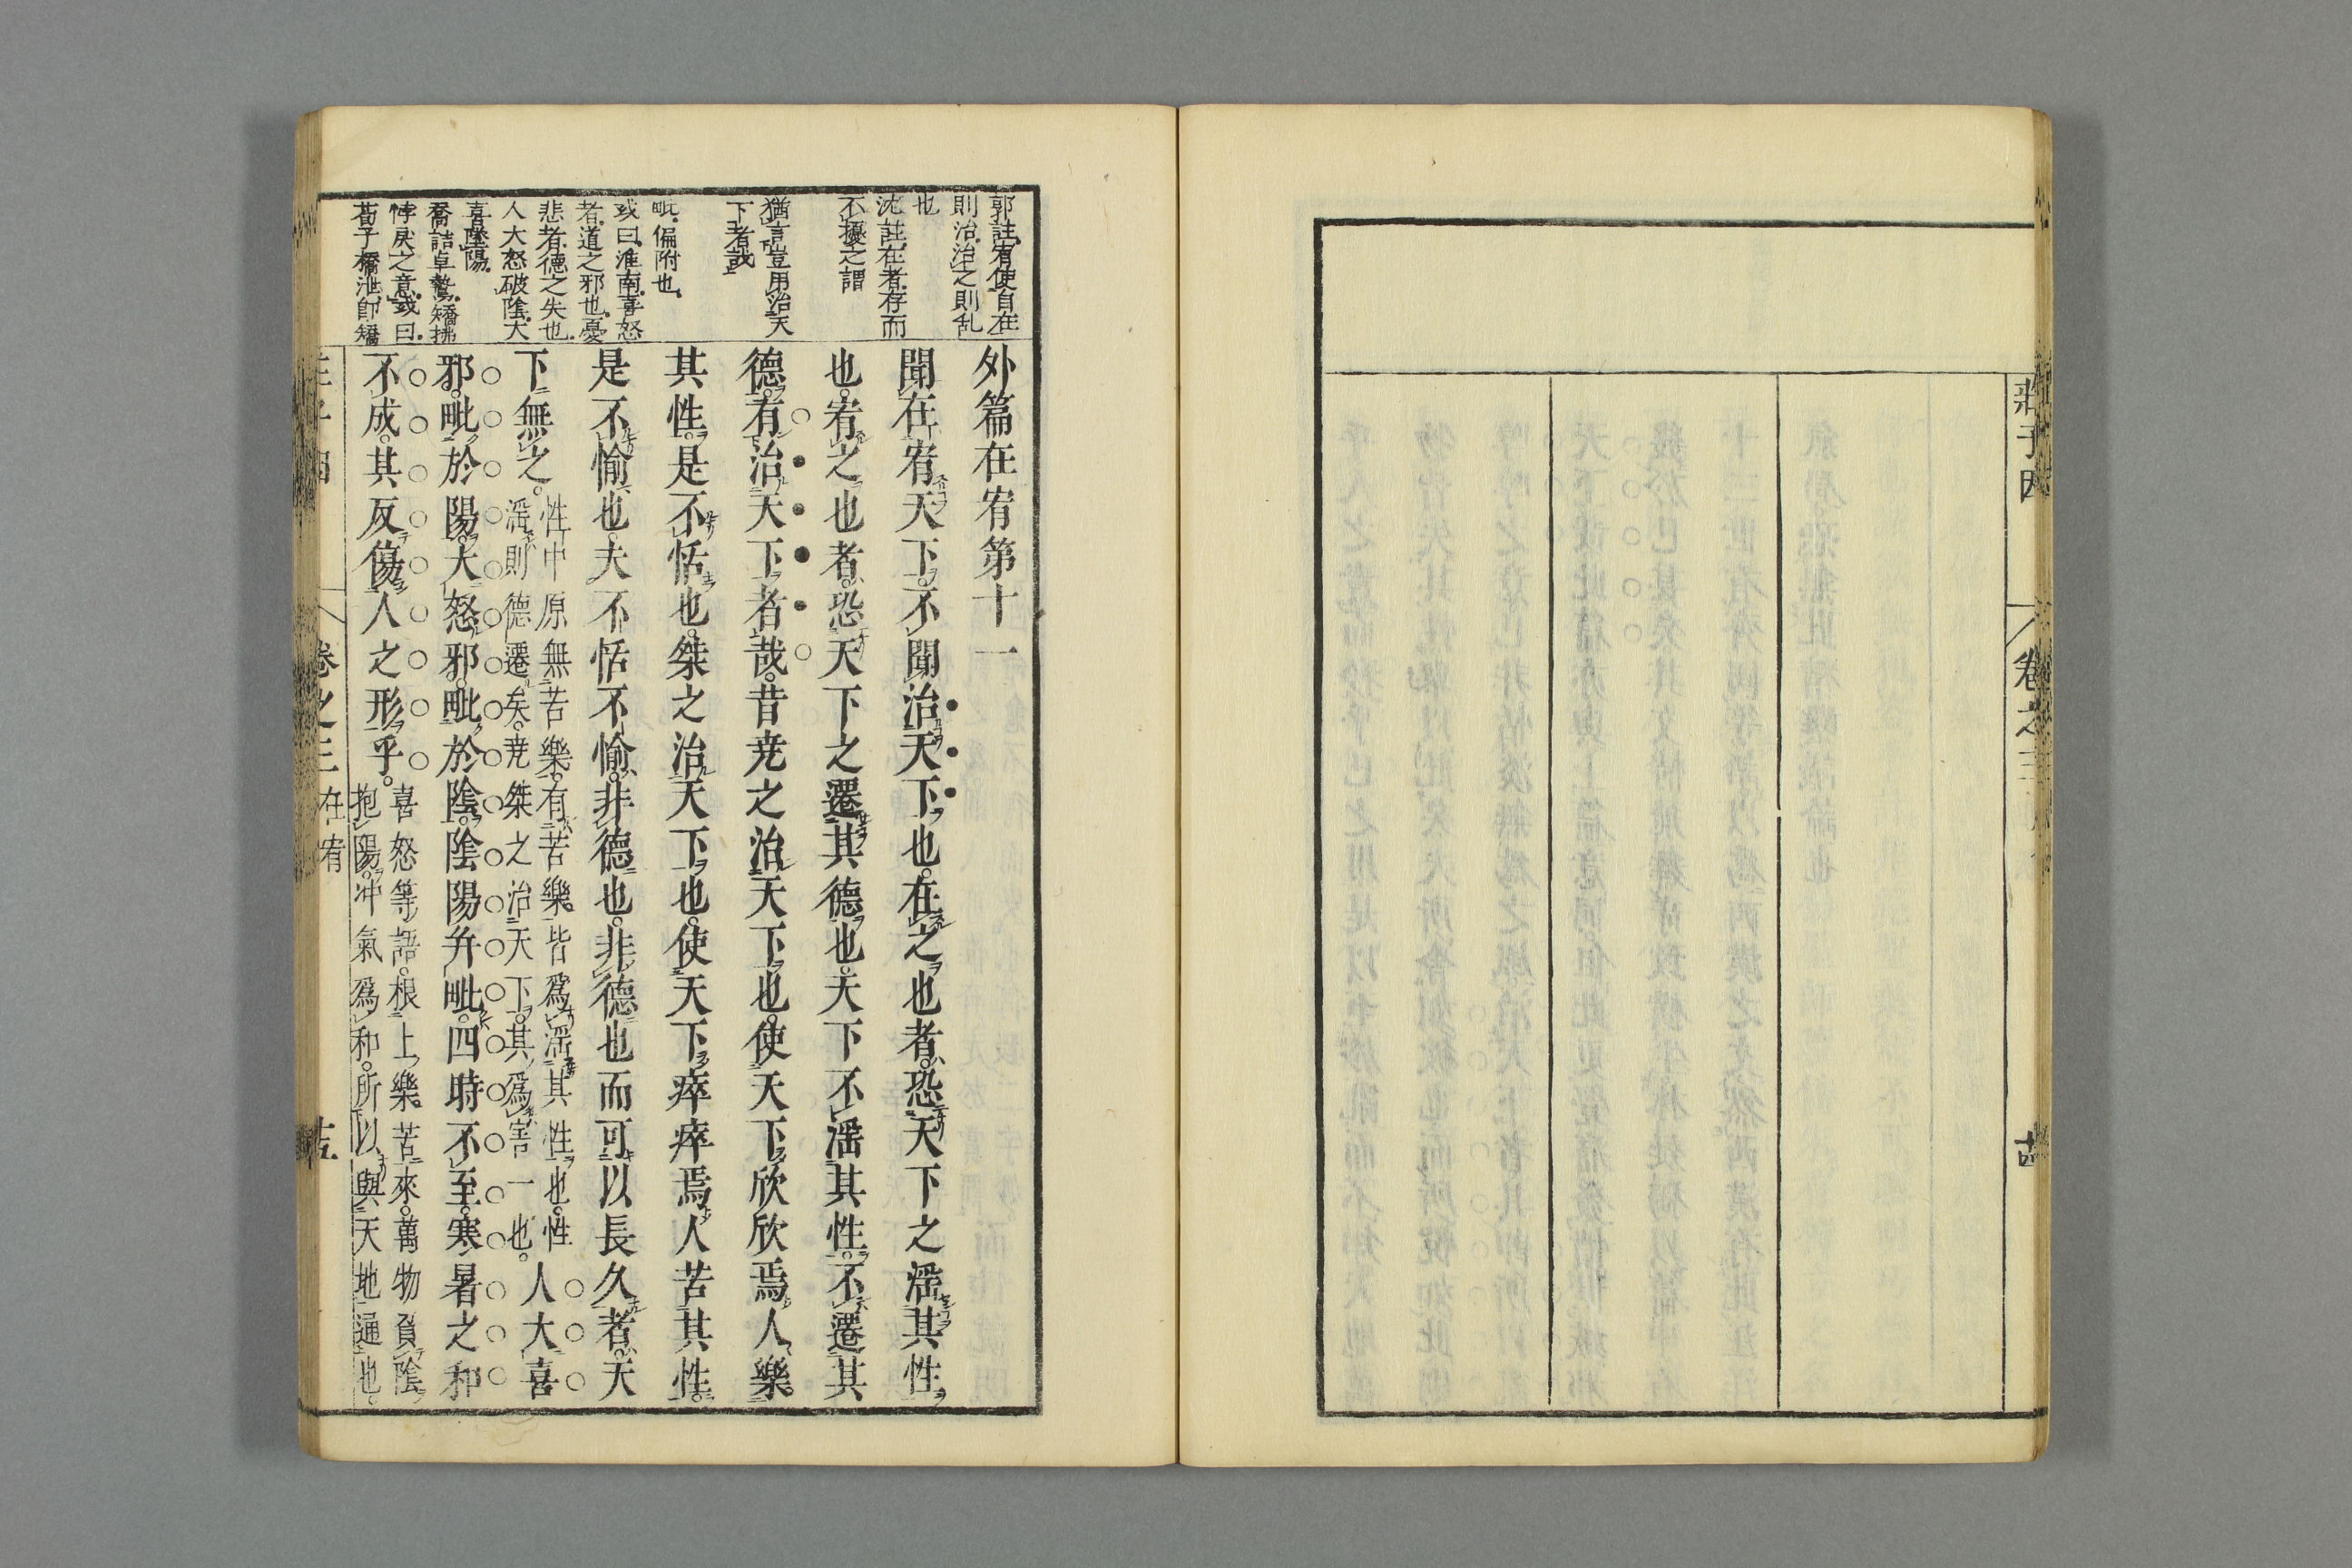 莊子因
卷之三
郭註宥使自在
則治治之則乱
也
沈註在者存而
不擾之謂
猶言豈用治天
下者哉
毗偏附也
或曰淮南喜怒
者道之邪也憂
悲者德之失也
人大怒破陰大
喜墜陽
喬詰卓鷙矯拂
悖戾之意或曰
荀子橋泄卽矯
外篇在宥第十一
聞在宥天下。不聞治天下也。在之也者。恐天下之滛其性
也。宥之也者。恐天下之遷其德也。天下不滛其性。不遷其
德。有治天下者哉。昔尭之治天下也。使天下欣欣焉人樂
其性。是不恬也。桀之治天下也。使天下瘁瘁焉人苦其性。
是不愉也。夫不恬不愉。非德也。非德也而可以長久者。天
下無之。
性中原無苦樂。有苦樂皆爲滛其性也。性
滛則德遷矣。尭桀之治天下。其爲害一也。
人大喜
邪。毗於陽。大怒邪。毗於陰。陰陽幷毗。四時不至。寒暑之和
不成。其反傷人之形乎。
喜怒等語。根上樂苦來。萬物負陰
抱陽。冲氣爲和。所以與天地通也。
卷之三
在宥